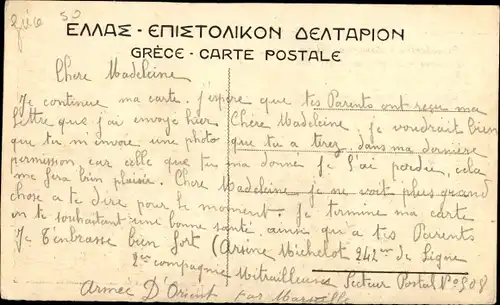 Grèce 50
ΕΛΛΑΣ - ΕΠΙΣΤΟΛΙΚΟΝ ΔΕΛΤΑΡΙΟΝ
GRÈCE - CARTE POSTALE
Chere Madeleine
Je continue ma carte. j'espère que tes Parents ont reçu ma
lettre que j'ai envoyé hier Chère Madeleine je voudrait bien
que tu m'envoie une photo que tu a tirez dans ma dernière
permission car celle que tu ma donné je l'ai perdue, cela
me fera bien plaisir. Chere Madeleine je ne voit plus grand
chose a te dire pour le moment. Je termine ma carte
en te souhaitant une bonne santé ainsi qu'a tes Parents
Je t'enbrasse bien fort (Arsène Michelot 242me de Ligne
2me compagnie Mitrailleuse Secteur Postal No 508
Armée D'Orient par Marseille